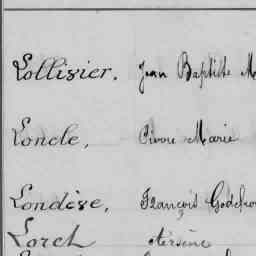 Lollisier. Jean Baptiste M
Loncle, Pierre Marie
Londèse, François Godefroy
Lorch Arsène